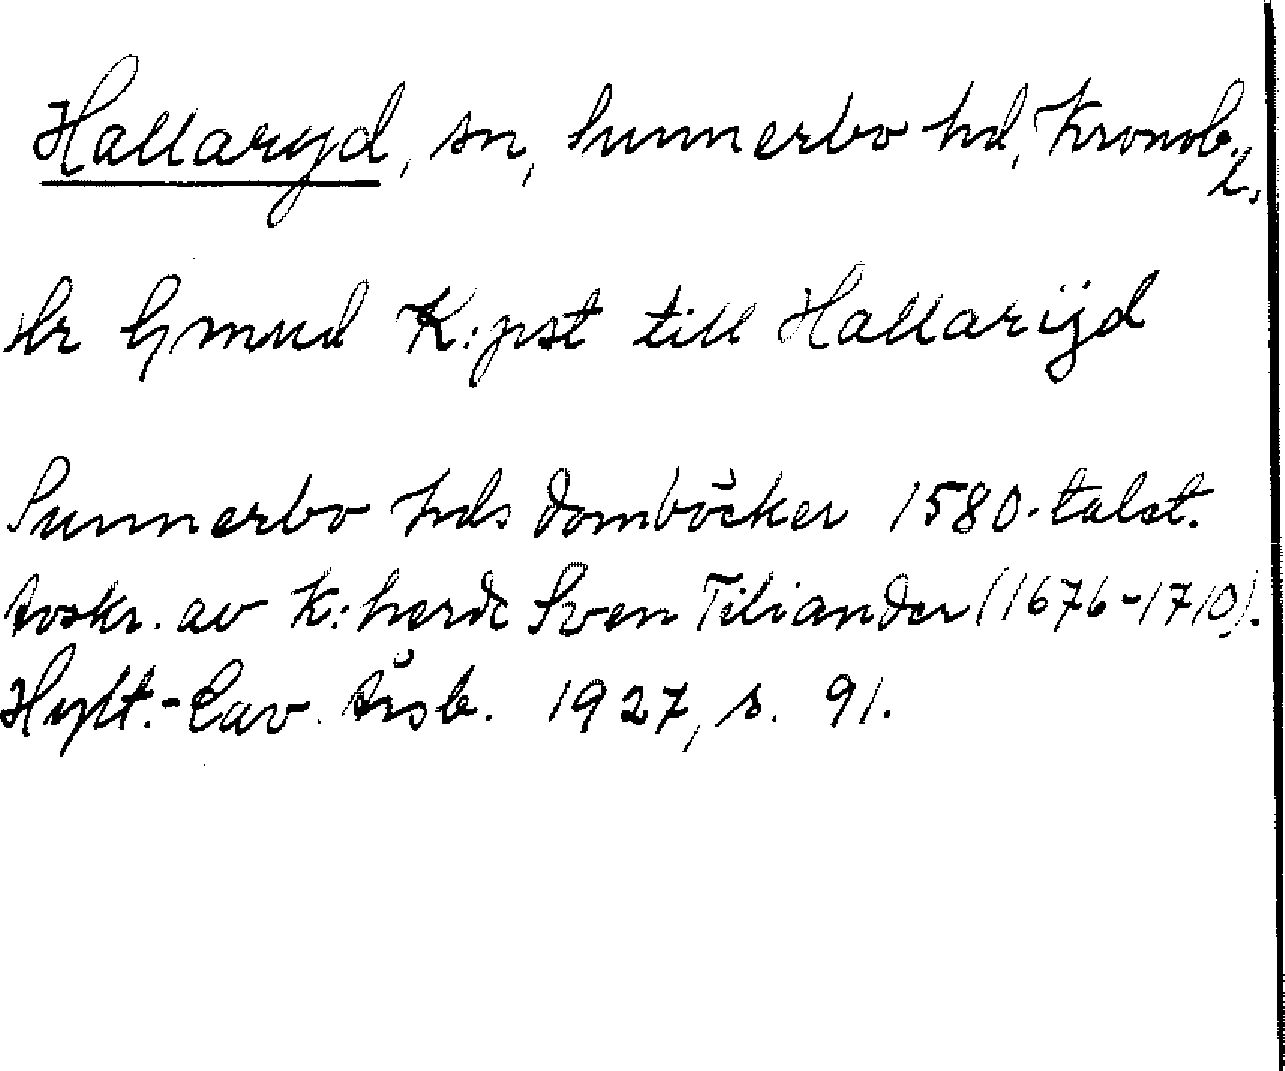 Hallaryd, sn, Sunnerbo hd, Kronob. l.
Hr Gmud K:pst till Hallarijd
Sunnerbo hds domböcker 1580-talet.
Avskr. av K:herde Sven Tiliander (1676-1710).
Hylt.-Cav. Årsb. 1927, s. 91.